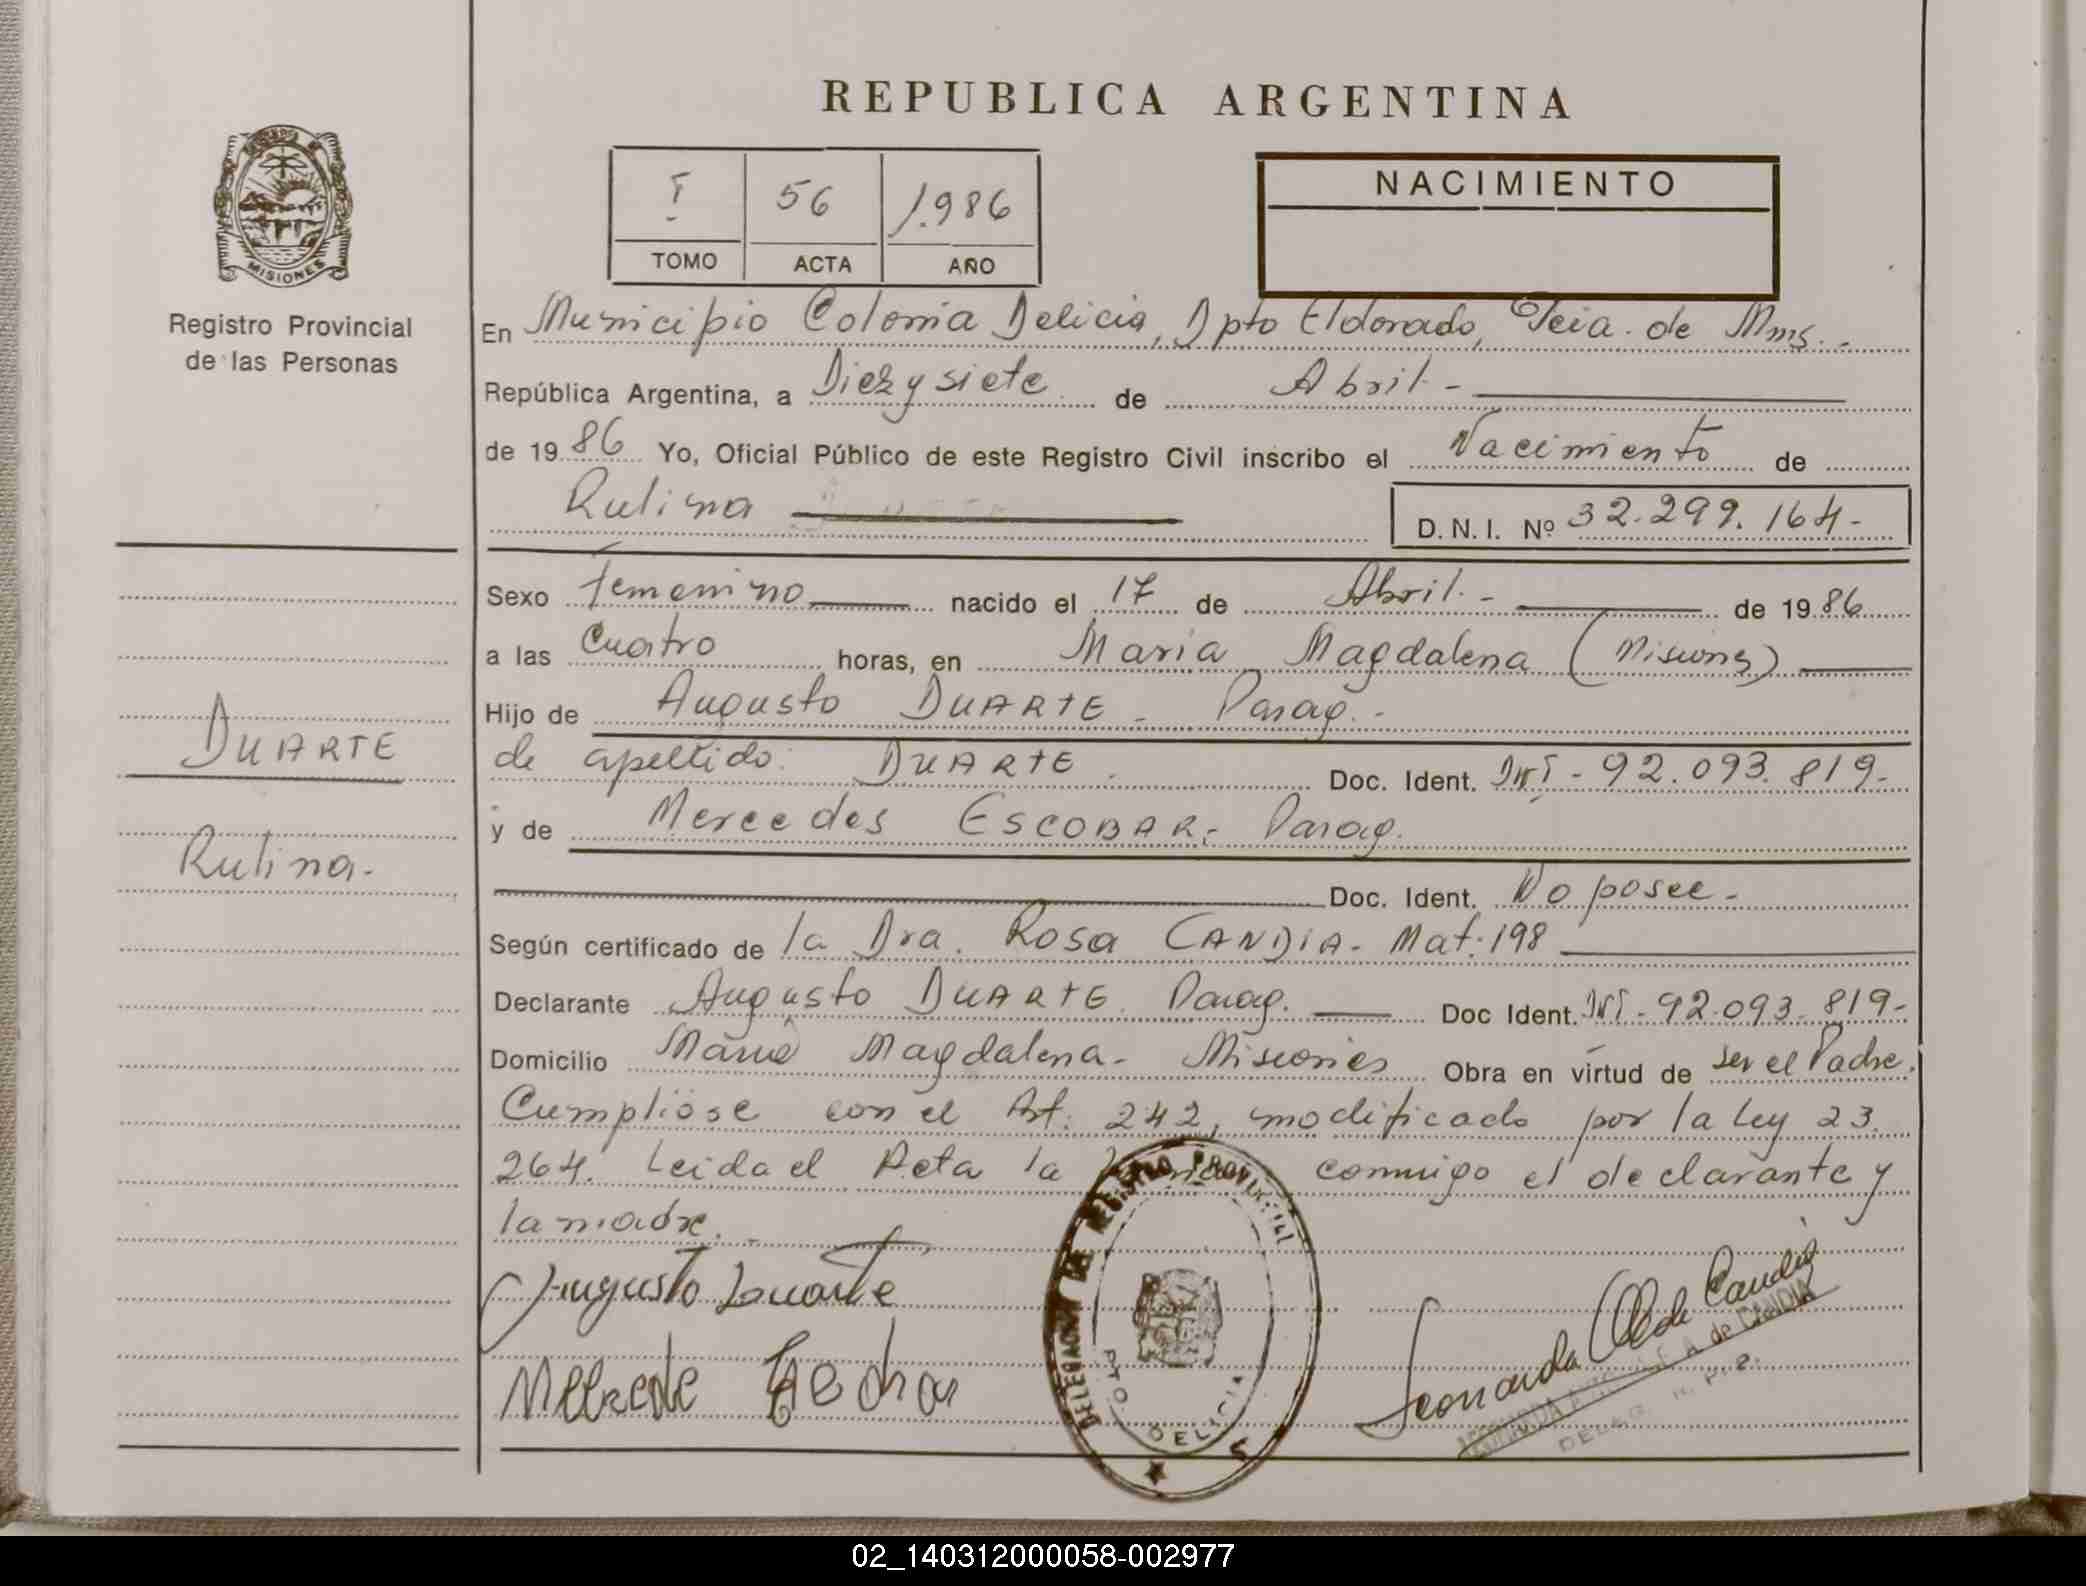 REPUBLICA ARGENTINA
MISIONES
Registro Provincial
de las Personas
I 56 1.986
TOMO ACTA AÑO
NACIMIENTO
En Municipio Colonia Delicia, Dpto Eldorado, Pcia. de Mnes.-
República Argentina, a Diez y siete de Abril.-
de 19 86 Yo, Oficial Público de este Registro Civil inscribo el Nacimiento de
Rulina
D.N.I. Nº 32.299.164-
Sexo femenino nacido el 17 de Abril.- de 19 86
a las Cuatro horas, en Maria Magdalena (Misiones)
Hijo de Augusto DUARTE - Parag.-
de apellido: DUARTE. Doc. Ident. DNI - 92.093.819-
y de Mercedes ESCOBAR, Parag.
Doc. Ident. No posee-
Según certificado de la Dra. Rosa CANDIA- Mat: 198
Declarante Augusto DUARTE. Parag. Doc Ident. DNI - 92.093.819-
Domicilio Maria Magdalena- Misiones Obra en virtud de ser el Padre.
Cumpliose con el Art. 242, modificado por la Ley 23.
264. Leida el Acta la conmigo el declarante y
la madre.
DUARTE
Rulina-
Augusto Duarte
DELEGACION DEL REGISTRO PROVINCIAL
PTO. DELICIA
Leonarda de Candia
A de CANDIA
DELEG. R. P. P.
02_140312000058-002977